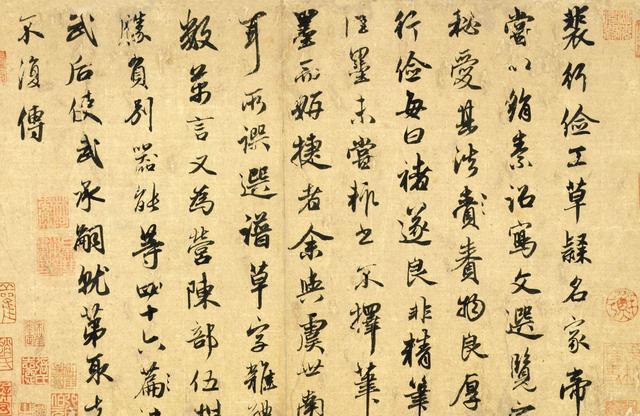 裴行儉工草隸名家帝
嘗以絹素詔寫文選覽
秘愛其法賚賚物良厚
行儉每曰褚遂良非精筆
佳墨未嘗輒書不擇筆
墨而妍捷者余與虞世南
耳所譔選譜草字雜體
數萬言又為營陳部伍
勝負別器能等四十六篇
武后使武承嗣就第取去
不復傳